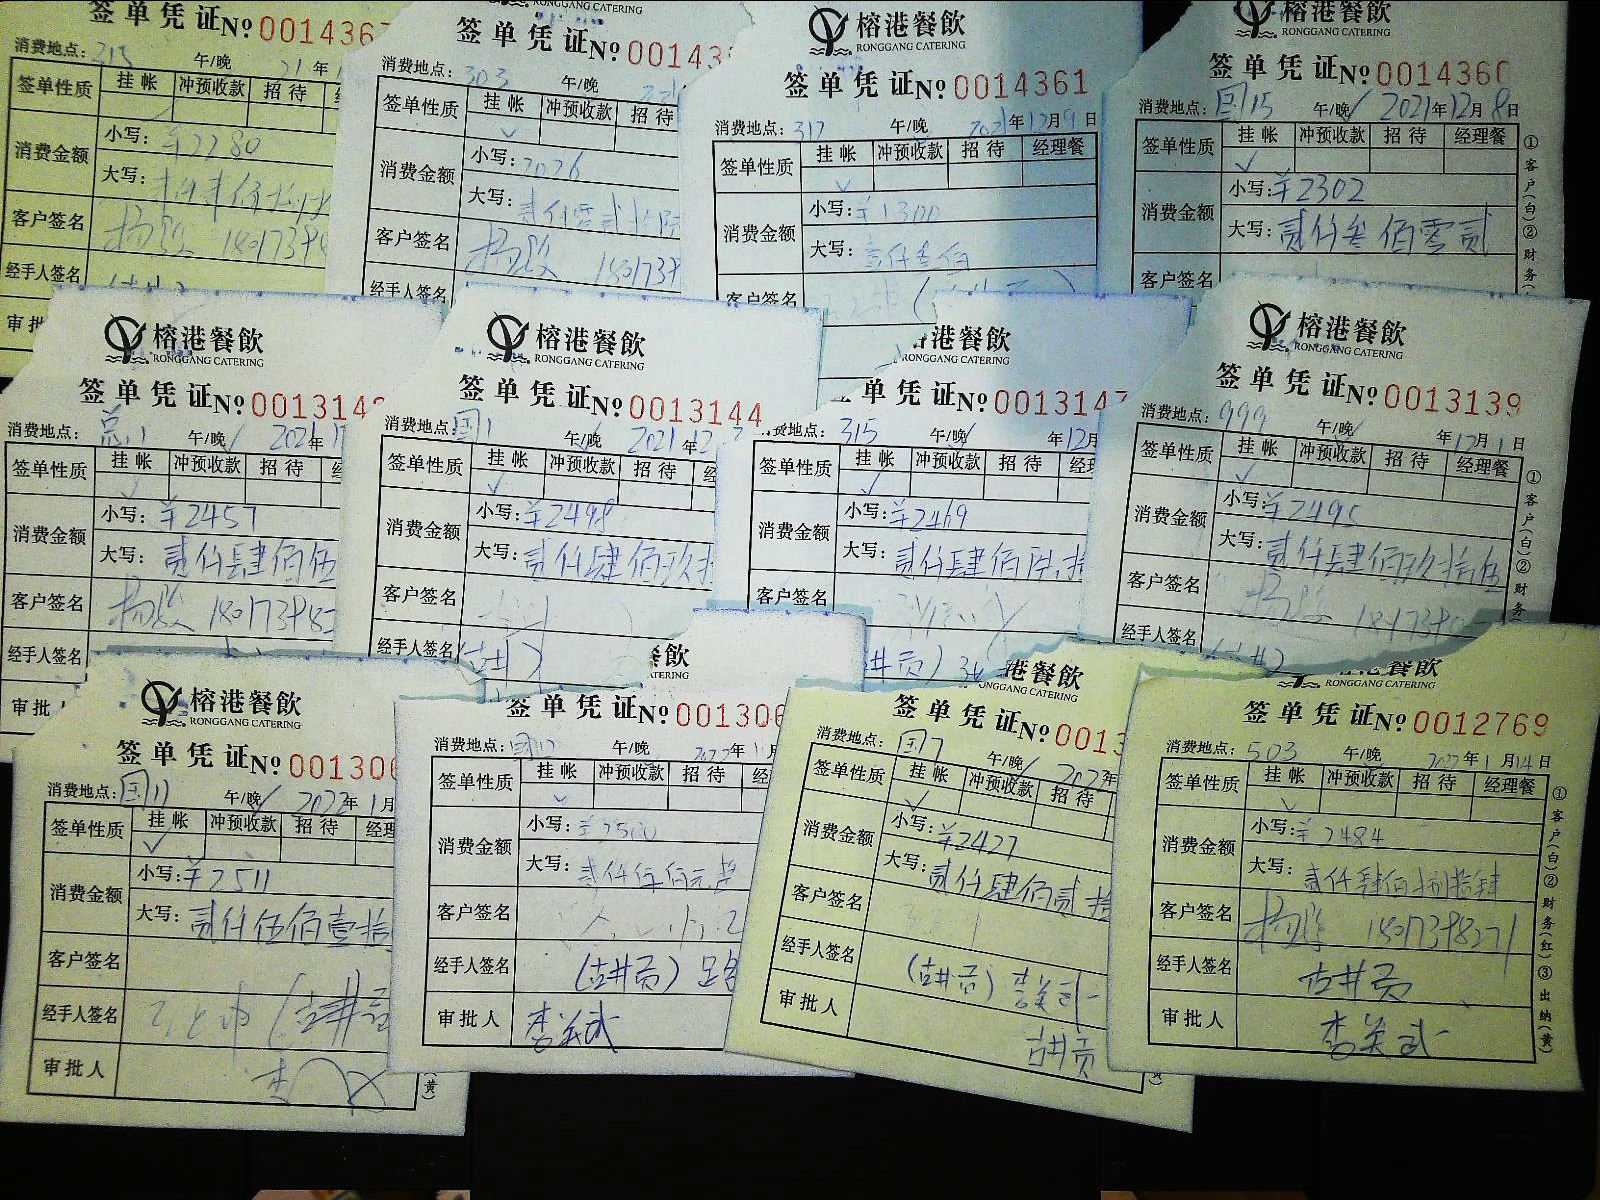 签单凭证 No 001436
消费地点: 午/晚 21年
签单性质 挂帐 冲预收款 招待
消费金额 小写: ¥2280
大写:
客户签名 180173
经手人签名
审批
RONGGANG CATERING
签单凭证 No 00143
消费地点: 303 午/晚
签单性质 挂帐 冲预收款 招待
消费金额 小写: 2026
大写: 贰仟零贰拾陆
客户签名 180173
经手人签名
榕港餐飲
RONGGANG CATERING
签单凭证 No 0014361
消费地点: 317 午/晚 2021年12月9日
签单性质 挂帐 冲预收款 招待 经理餐
消费金额 小写: ¥1300
大写: 壹仟叁佰
客户签名
榕港餐飲
RONGGANG CATERING
签单凭证 No 0014360
消费地点: 国15 午/晚 2021年12月8日
签单性质 挂帐 冲预收款 招待 经理餐
消费金额 小写: ¥2302
大写: 贰仟叁佰零贰
客户签名
①客户(白)②财务
榕港餐飲
RONGGANG CATERING
签单凭证 No 001314
消费地点: 总1 午/晚 2021年
签单性质 挂帐 冲预收款 招待
消费金额 小写: ¥2457
大写: 贰仟肆佰伍
客户签名 18017398
经手人签名
审批人
榕港餐飲
RONGGANG CATERING
签单凭证 No 0013144
消费地点: 国1 午/晚 2021年12
签单性质 挂帐 冲预收款 招待
消费金额 小写: ¥2498
大写: 贰仟肆佰玖拾
客户签名
经手人签名 (古井)
港餐飲
RONGGANG CATERING
单凭证 No 0013147
消费地点: 315 午/晚 年12月
签单性质 挂帐 冲预收款 招待
消费金额 小写: ¥2469
大写: 贰仟肆佰陆拾
客户签名
井贡)
榕港餐飲
RONGGANG CATERING
签单凭证 No 0013139
消费地点: 999 午/晚 年12月1日
签单性质 挂帐 冲预收款 招待 经理餐
消费金额 小写: ¥2495
大写: 贰仟肆佰玖拾伍
客户签名 1801739
经手人签名
①客户(白)②财务
榕港餐飲
RONGGANG CATERING
签单凭证 No 001306
消费地点: 国11 午/晚 2022年1月
签单性质 挂帐 冲预收款 招待 经理
消费金额 小写: ¥2511
大写: 贰仟伍佰壹拾
客户签名
经手人签名 (古井贡
审批人
黄)
餐飲
签单凭证 No 001306
消费地点: 国12 午/晚 2022年1月
签单性质 挂帐 冲预收款 招待
消费金额 小写: ¥2500
大写: 贰仟伍佰元整
客户签名
经手人签名 (古井贡)
审批人 李关武
港餐飲
RONGGANG CATERING
签单凭证 No 0013
消费地点: 国7 午/晚 2022年
签单性质 挂帐 冲预收款 招待
消费金额 小写: ¥2427
大写: 贰仟肆佰贰拾
客户签名
经手人签名 (古井贡) 李关武
审批人 古井贡
榕港餐飲
RONGGANG CATERING
签单凭证 No 0012769
消费地点: 503 午/晚 2022年1月14日
签单性质 挂帐 冲预收款 招待 经理餐
消费金额 小写: ¥2484
大写: 贰仟肆佰捌拾肆
客户签名 18017398271
经手人签名 古井贡
审批人 李关武
①客户(白)②财务(红)③出纳(黄)